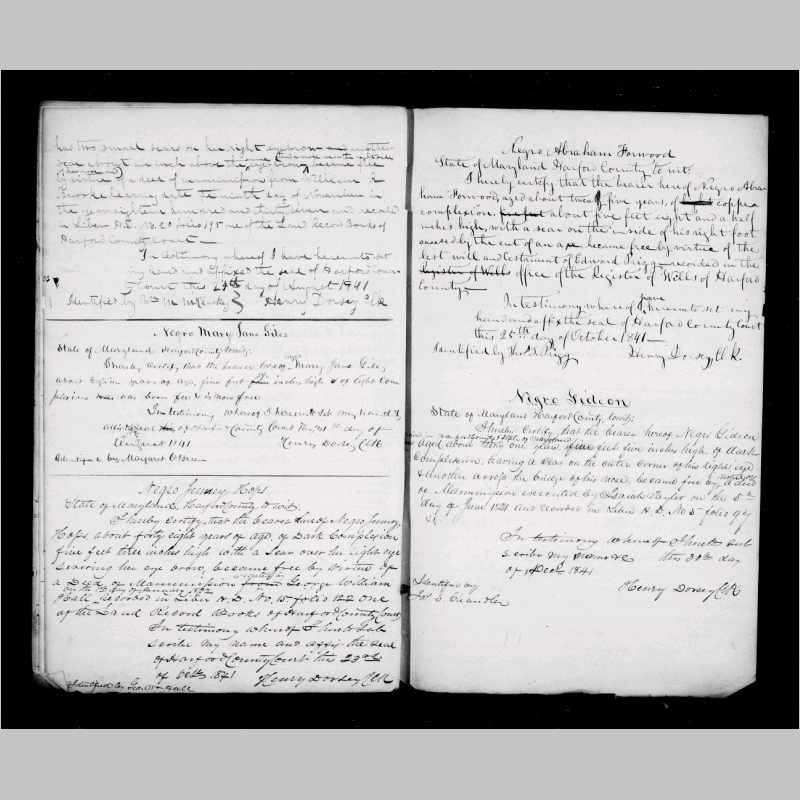 has two small scars on his right eyebrow another
scar about an inch above the eyebrow became free
by a deed of manumission from William
Brooke bearing date the ninth day of November in
the year eighteen hundred and thirty seven and recorded
in Liber H.D. No. 20 folio 195 one of the Land Record Books of
Harford County court
In testimony whereof I have hereunto set
my hand and affixed the seal of Harford County
Court this 14th day of August 1841
Identified by Henry Dorsey Clk
Negro Mary Jane Giles
State of Maryland Harford County to wit:
I hereby certify that the bearer hereof Negro Mary Jane Giles,
aged years of age, five feet inches high & of light Com
plexion was born free & is now free.
In testimony whereof I hereunto set my hand &
affix the seal of Harford County Court this day of
August 1841 Henry Dorsey Clk
Identified by Margaret O'Brien
Negro Jenny Hops
State of Maryland, Harford County to wit:
I hereby certify, that the bearer hereof Negro Jenny
Hops about forty eight years of age, of dark Complexion
five feet three inches high with a scar over her right eye
became free by virtue of
a Deed of Manumission George William
on the day of January
Hall, Recorded in Liber H.D. No. 15 folio 122 One
of the Land Record Books of Harford County Court
In testimony whereof I hereto Sub
scribe my name and affix the seal
of Harford County Court this 23rd
of Octr. 1841 Henry Dorsey Clk
Identified by Geo. Wm Hall
Negro Abraham Forwood
State of Maryland Harford County to wit:
I hereby certify that the bearer hereof Negro Abra
ham Forwood, aged about twenty five years, of copper
complexion about five feet eight and a half
inches high, with a scar on the inside of his right foot
caused by the cut of an axe became free by virtue of the
last will and testament of Edward Prigg recorded in the
Register of Wills office of the Register of Wills of Harford
County.
In testimony whereof I have hereunto set my
hand and affix the seal of Harford County Court
this 25th day of October 1841
Identified by Prigg Henry Dorsey Clk.
Negro Gideon
State of Maryland Harford County, to wit:
I hereby Certify, that the bearer hereof Negro Gideon
Aged about years five feet five inches high of dark
Complexion, having a scar on the outer corner of his right eye
& another across the bridge of his nose, became free by a deed
of Manumission executed by Isaiah Taylor on the 5th
day of June 1821 and recorded in Liber H.D. No 5 folio 97
&c.
In testimony whereof I hereto sub
scribe my name &c this 30th day
of Decr 1841
Henry Dorsey Clk
Identified by
Chandler